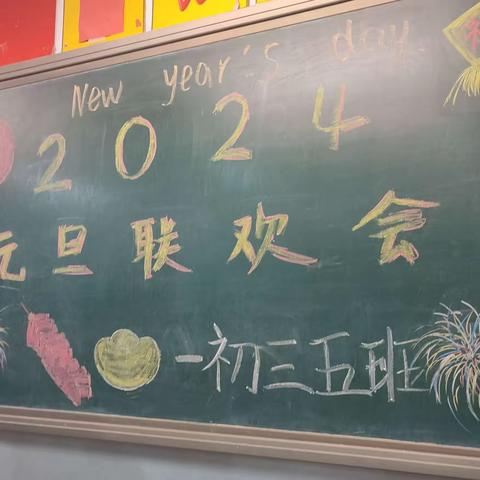 New year's day
2024
元旦联欢会
一初三五班